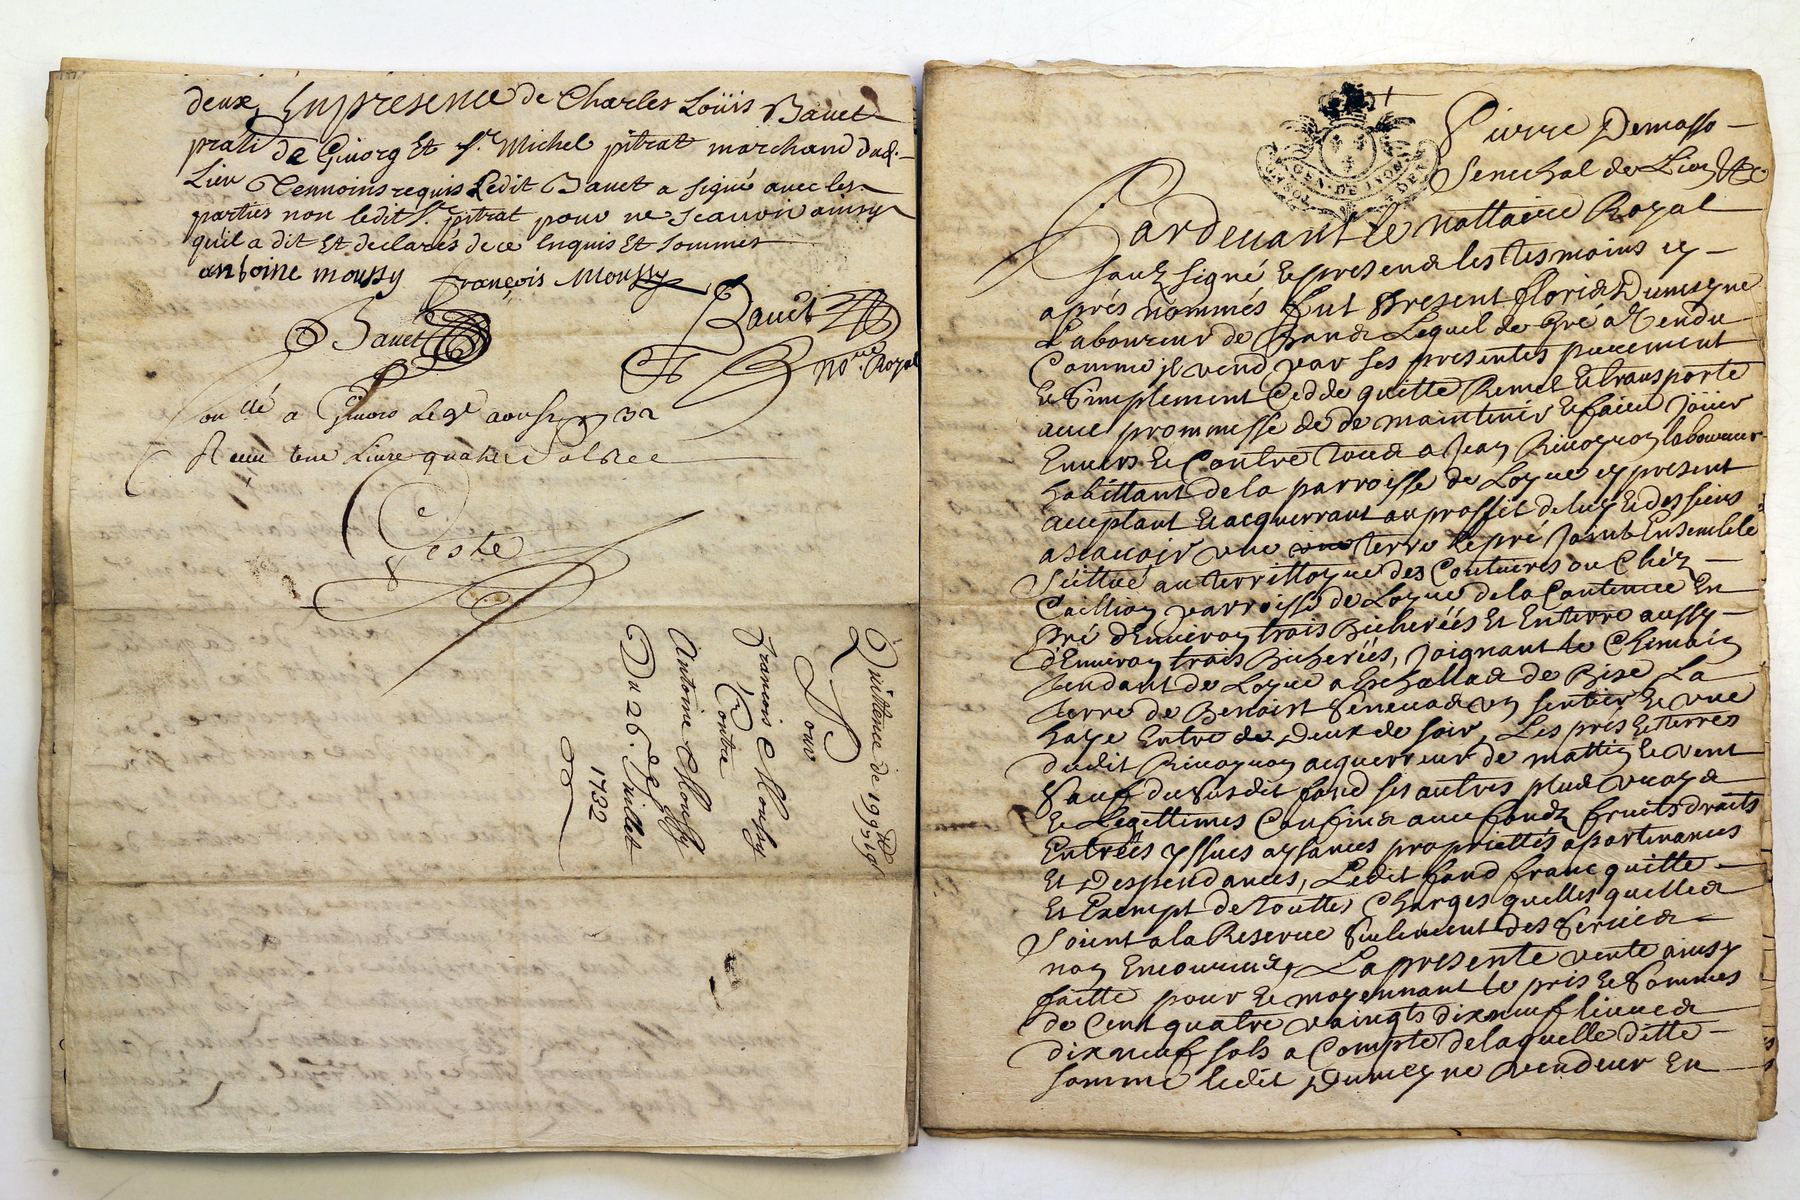 deux, En presence de Charles Loüis Bauet
prati de Giuorg Et Sr. Michel pitrat marchand dud.
Lieu Temoins requis Ledit Bauet a signé auec les
parties non ledit Sr. pitrat pour ne scauoir ainsy
quil a dit Et declarés de ce Enquis Et sommés
antoine moussy françois Moussy
Bauet
Bauet
No.re Royal
llé a Giuors Le 9e aoust 1732
Receu Liure quatre sols
Geste
Quittence de 199 tt 19 s
Pour
francois Mousy
Contre
Antoine Moussy
Du 26.e Juillet
1732
GEN. DE LYON
Pierre Demasso
Senechal de Lion &c
Pardeuant le nottaire Royal
souz signé Et presend les tesmoins cy
aprés nommés fut Present florid Dumeyne
Laboureur de Lequel de Gré a Vendu
Comme jl vend par ses presentes purement
Et Simplement Cedde quitte Remet Et transporte
auec prommesse de de maintenir Et faire Jöüir
Enuers Et Contre Tous a Jean laboureur
habittant de la parroisse de Loyre cy present
acceptant Et acquerrant au proffit de luy Et des siens
a scauoir vne terre Et pré Joint Ensemble
Scittué au territtoyre des Coutures ou Chéz
parroisse de Loyre de la Contenue En
Pré d'Enuiron trois Bicherées Et En terre aussy
d'Enuiron trois Bicherées, Joignant le Chemain
Tendant de Loyre a Eschallas de Bise La
terre de Benoist Seneuas vn sentier Et vne
haye Entre de Deux de soir, Les prés Et terres
dudit acquerreur de mattin Et vent
Sauf du Susdit fond ses autres plus vrays
Et Legittimes Confins auec fonds fruits droits
Entrées yssues aysances propriettés apartenances
Et Despendances, Ledit fond franc quitte
Et Exempt de Touttes Charges quelles quelles
soient a la Reserue Seulement des Seruis
non Encourus, La presente vente ainsy
faitte pour Et moyennant le pris Et Sommes
de Cent quatre vaingts dix neuf liures
dix neuf sols a Compte de laquelle ditte
somme ledit Dumeyne vendeur En